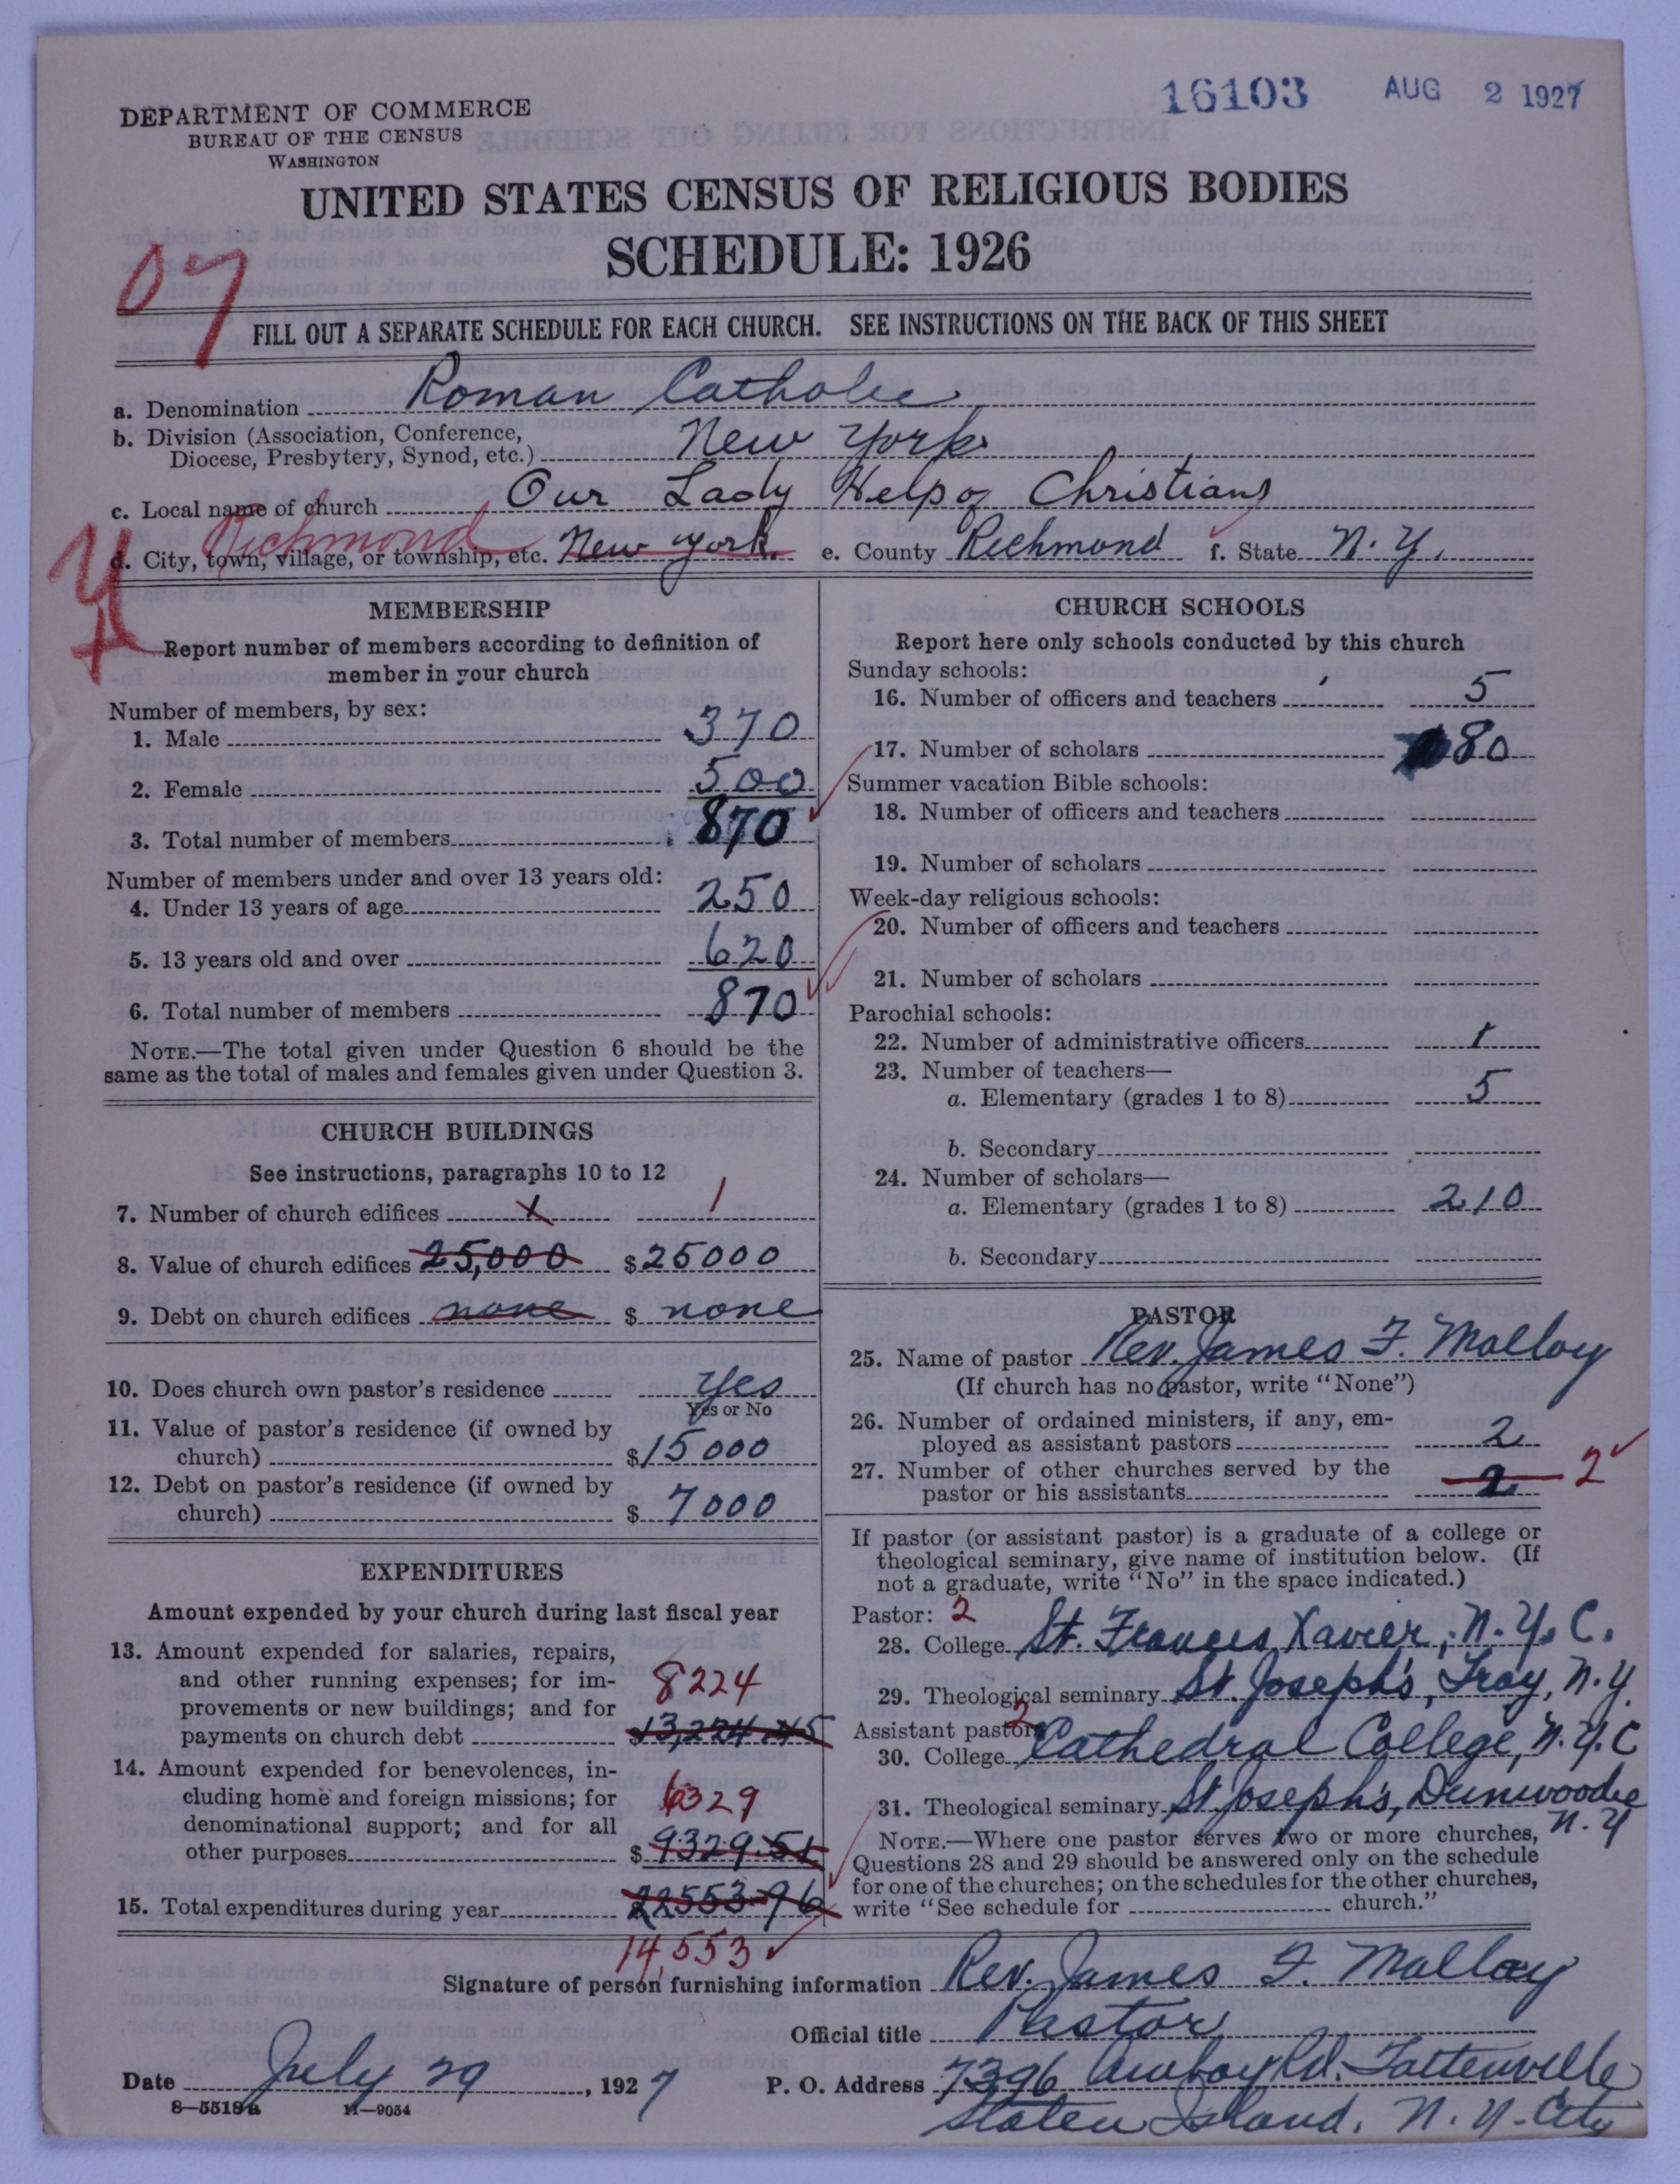 16103 AUG 2 1927
DEPARTMENT OF COMMERCE
BUREAU OF THE CENSUS
WASHINGTON
UNITED STATES CENSUS OF RELIGIOUS BODIES
SCHEDULE: 1926
07
FILL OUT A SEPARATE SCHEDULE FOR EACH CHURCH. SEE INSTRUCTIONS ON THE BACK OF THIS SHEET
a. Denomination Roman Catholic
b. Division (Association, Conference,
Diocese, Presbytery, Synod, etc.) New York
c. Local name of church Our Lady Help of Christians
Richmond
d. City, town, village, or township, etc. New York. e. County Richmond f. State N. Y.
MEMBERSHIP
Report number of members according to definition of
member in your church
Number of members, by sex:
1. Male 370
2. Female 500
3. Total number of members 870
Number of members under and over 13 years old:
4. Under 13 years of age 250
5. 13 years old and over 620
6. Total number of members 870
NOTE.—The total given under Question 6 should be the
same as the total of males and females given under Question 3.
CHURCH BUILDINGS
See instructions, paragraphs 10 to 12
7. Number of church edifices 1 1
8. Value of church edifices 25,000 $25000
9. Debt on church edifices none $ none
10. Does church own pastor's residence Yes
Yes or No
11. Value of pastor's residence (if owned by
church) $15000
12. Debt on pastor's residence (if owned by
church) $ 7000
EXPENDITURES
Amount expended by your church during last fiscal year
13. Amount expended for salaries, repairs,
and other running expenses; for im-
provements or new buildings; and for
8224
payments on church debt 13,224.45
14. Amount expended for benevolences, in-
cluding home and foreign missions; for
6329
denominational support; and for all
other purposes $ 9329.51
15. Total expenditures during year 22553.96
14,553
CHURCH SCHOOLS
Report here only schools conducted by this church
Sunday schools:
16. Number of officers and teachers 5
17. Number of scholars 80
Summer vacation Bible schools:
18. Number of officers and teachers
19. Number of scholars
Week-day religious schools:
20. Number of officers and teachers
21. Number of scholars
Parochial schools:
22. Number of administrative officers 1
23. Number of teachers—
a. Elementary (grades 1 to 8) 5
b. Secondary
24. Number of scholars—
a. Elementary (grades 1 to 8) 210
b. Secondary
PASTOR
25. Name of pastor Rev. James F. Malloy
(If church has no pastor, write "None")
26. Number of ordained ministers, if any, em-
ployed as assistant pastors 2
27. Number of other churches served by the
pastor or his assistants 2 2
If pastor (or assistant pastor) is a graduate of a college or
theological seminary, give name of institution below. (If
not a graduate, write "No" in the space indicated.)
Pastor: 2
28. College St. Francis Xavier, N. Y. C.
29. Theological seminary St. Joseph's, Troy, N. Y.
Assistant pastor: 2
30. College Cathedral College, N. Y. C
31. Theological seminary St Joseph's, Dunwoodie
N. Y
NOTE.—Where one pastor serves two or more churches,
Questions 28 and 29 should be answered only on the schedule
for one of the churches; on the schedules for the other churches,
write "See schedule for church."
Signature of person furnishing information Rev. James F. Malloy
Official title Pastor
Date July 29, 1927 P. O. Address 7396 Amboy Rd. Tottenville
Staten Island. N. Y. City
8—5518a 11—9054